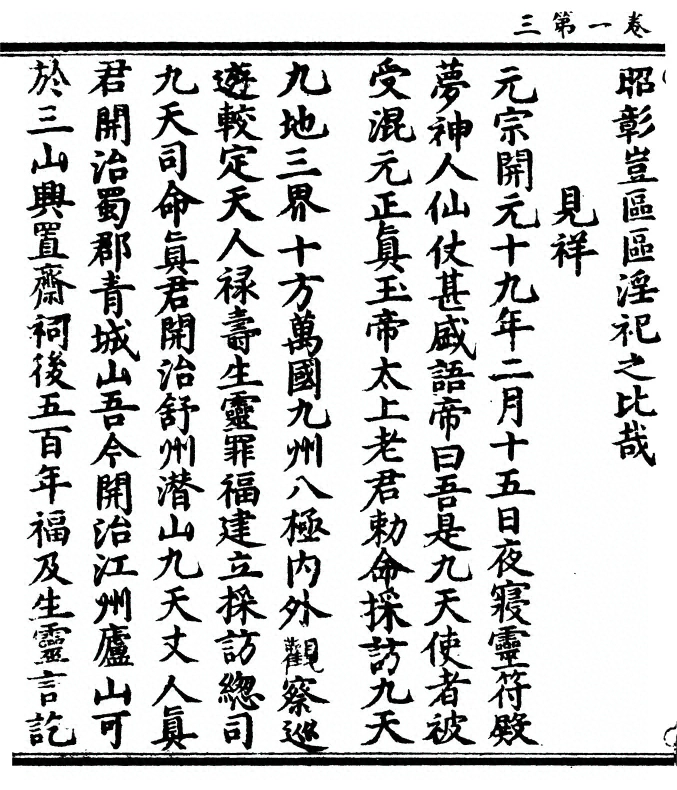 卷一第三
昭彰豈區區淫祀之比哉
見祥
元宗開元十九年二月十五日夜寢靈符殿
夢神人仙仗甚盛語帝曰吾是九天使者被
受混元正眞玉帝太上老君勅命採訪九天
九地三界十方萬國九州八極內外觀察巡
遊較定天人禄壽生靈罪福建立採訪緫司
九天司命眞君開治舒州潜山九天丈人眞
君開治蜀郡青城山吾今開治江州廬山可
於三山興置齋祠後五百年福及生靈言訖